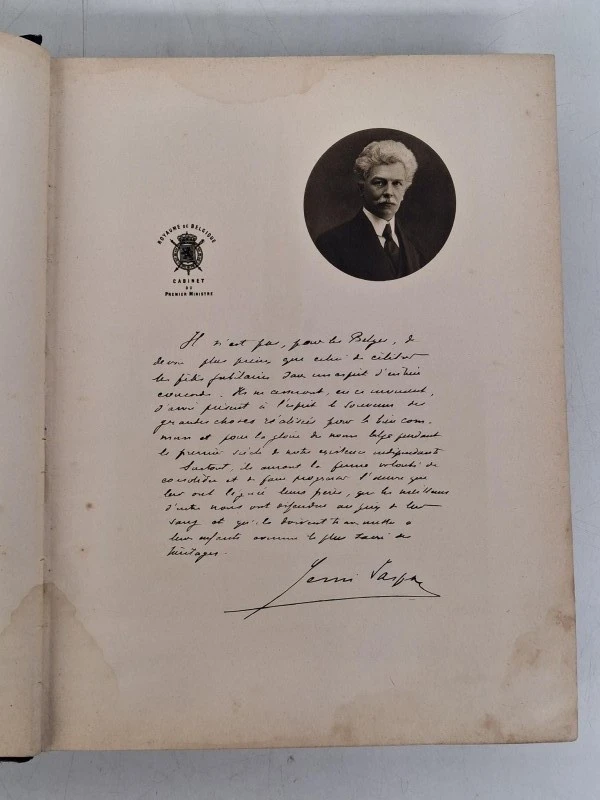 ROYAUME DE BELGIQUE
CABINET
DU
PREMIER MINISTRE
Il n'est pas, pour les Belges, de
devoir plus pieux que celui de célébrer
les fêtes jubilaires dans un esprit d'entière
concorde. Ils ne sauront, en ce moment,
d'avoir présent à l'esprit le souvenir des
grandes choses réalisées pour le bien com-
mun et pour la gloire du nom belge pendant
le premier siècle de notre existence indépendante
Surtout, ils auront la ferme volonté de
consolider et de faire progresser l'œuvre que
leur ont léguée leurs pères, que les meilleurs
d'entre nous ont défendue au prix de leur
sang et qu'ils doivent transmettre à
leurs enfants comme le plus sacré des
héritages.
Henri Jaspar